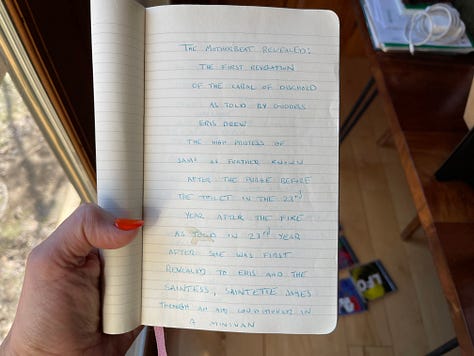 THE MOTHERBEAT REVEALED:
THE FIRST REVELATION
OF THE CABAL OF DISCHORD
AS TOLD BY GODDESS
ERIS DREW
THE HIGH PRIESTESS OF
SAME AS FURTHER KNOWN
AFTER THE PURGE BEFORE
THE TOILET IN THE 23rd
YEAR AFTER THE FIRE
AS TOLD IN 23rd YEAR
AFTER SHE WAS FIRST
REVEALED TO ERIS AND THE
SAINTESS, SAINTETTE JAMES
THROUGH AN AIR CONDITIONER IN
A MINIVAN